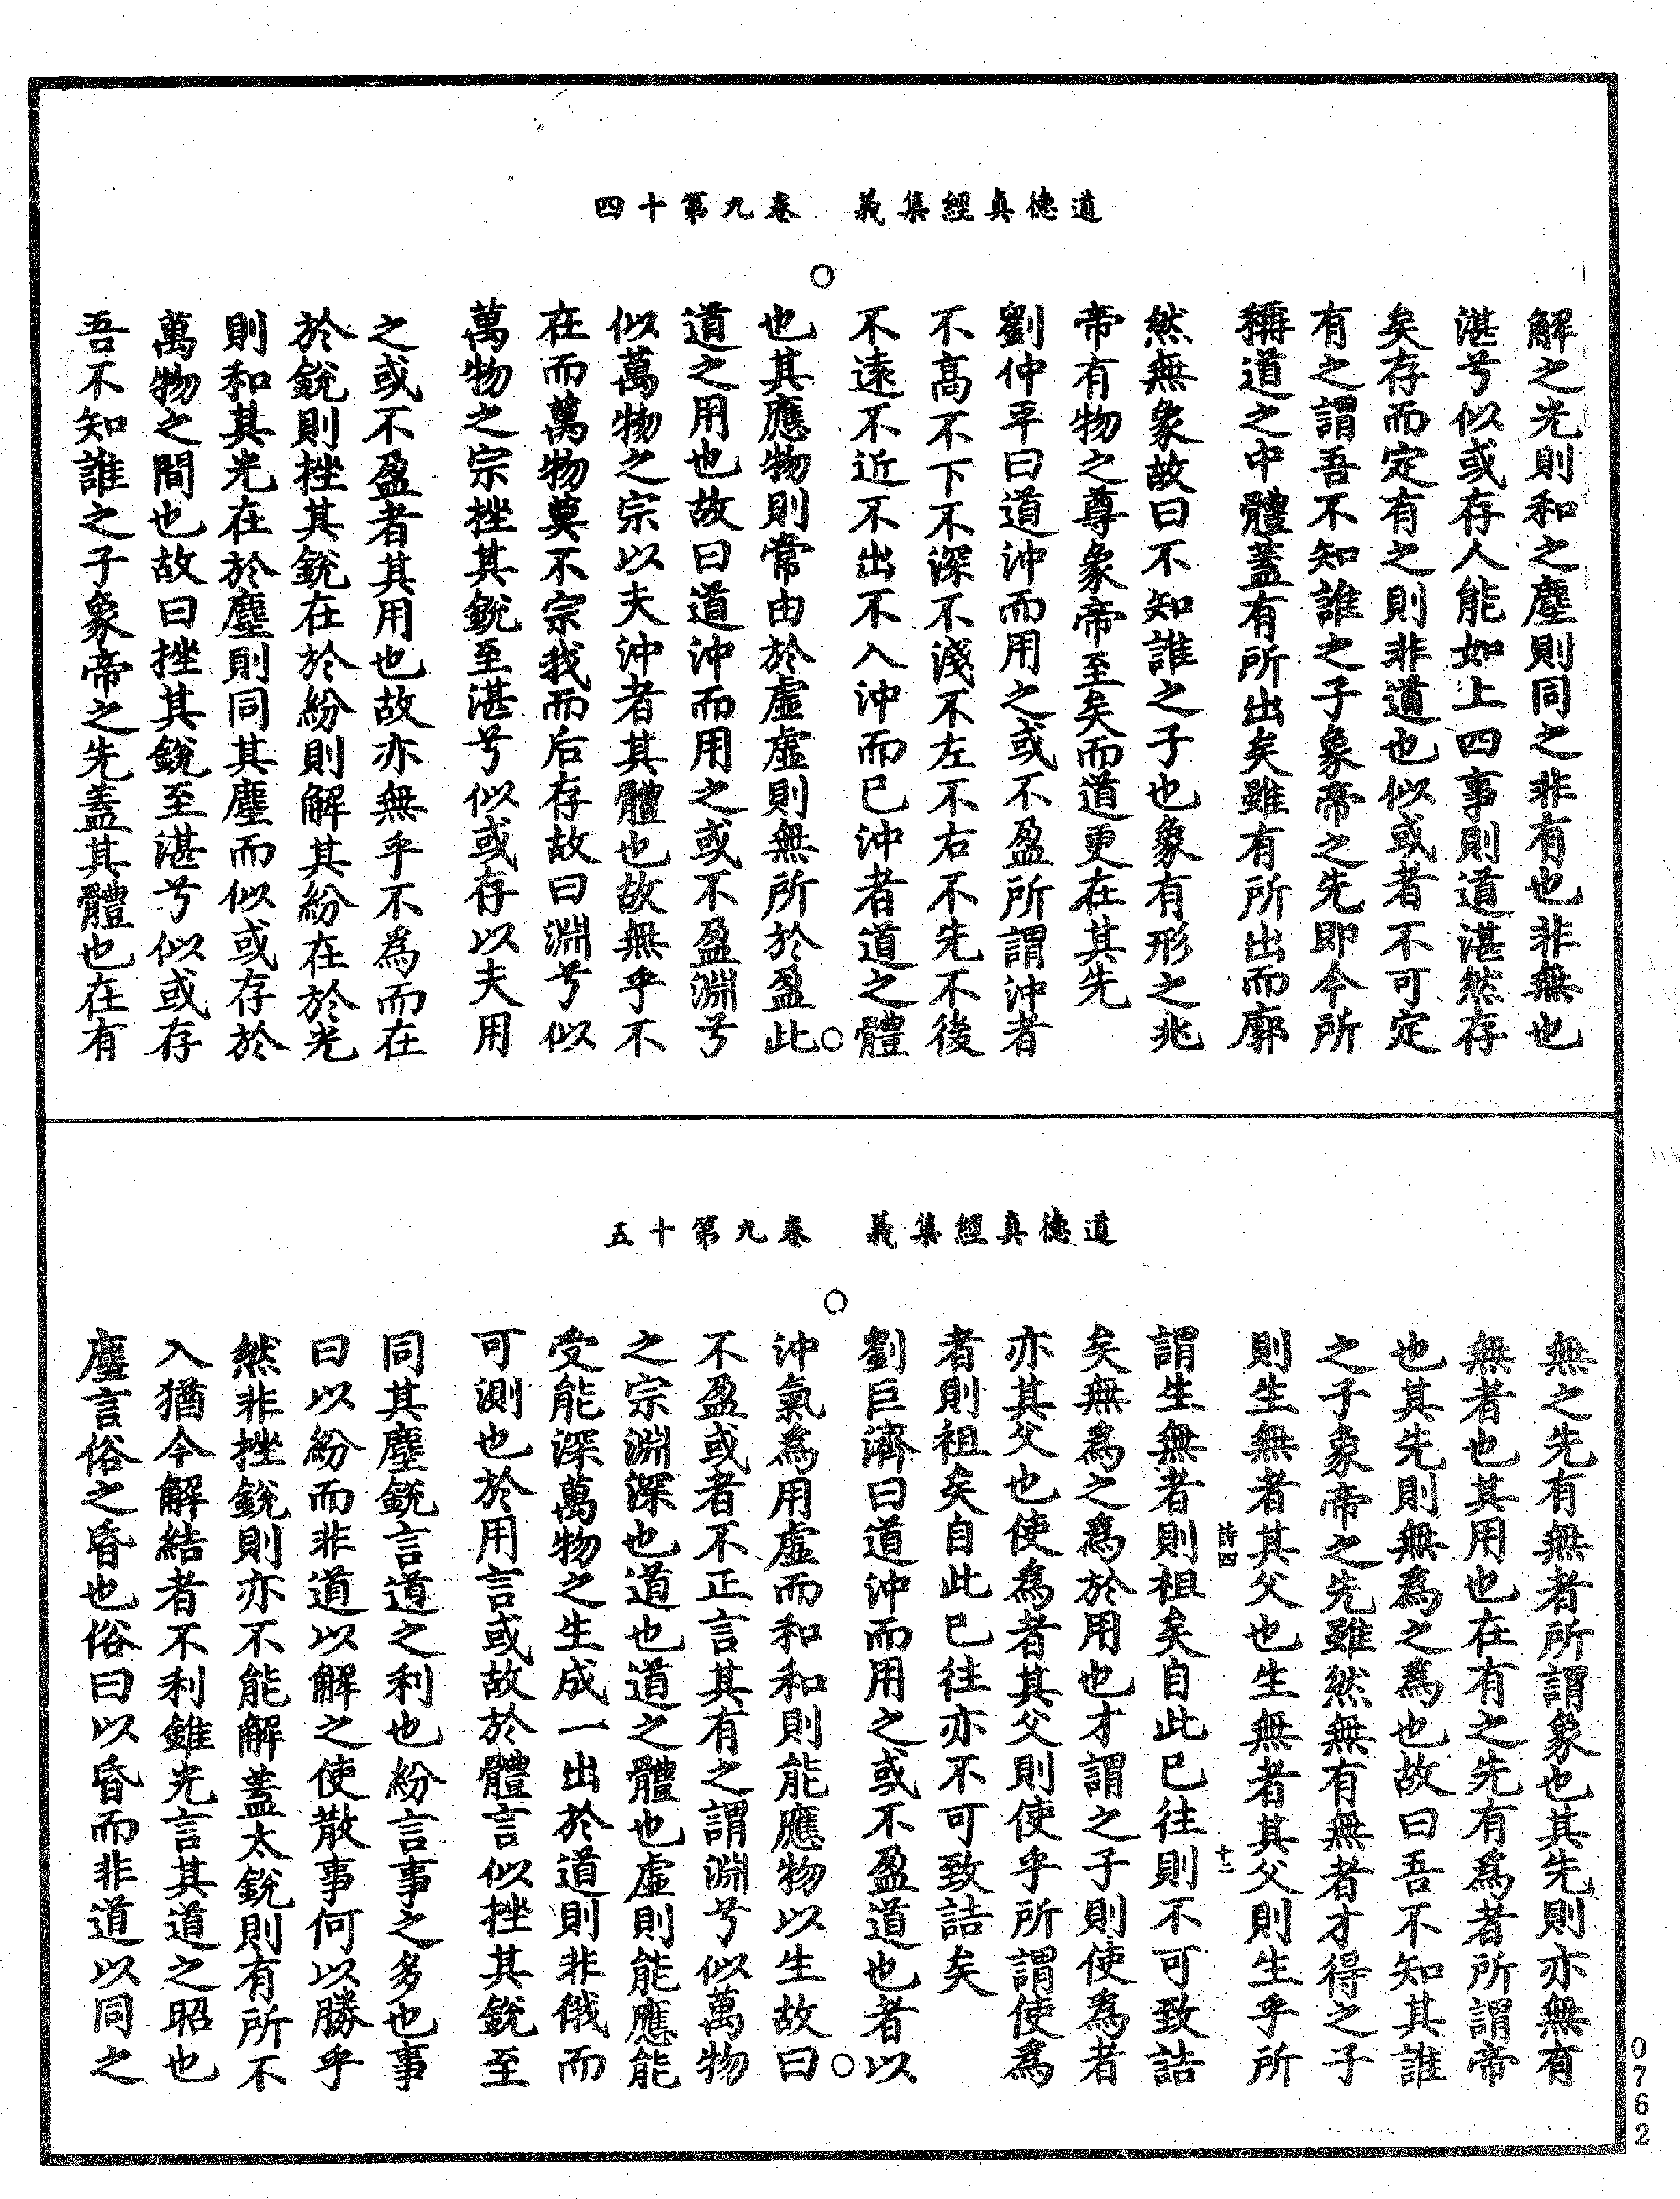 道德真經集義　卷九第十四
解之光則和之塵則同之非有也非無也
湛兮似或存人能如上四事則道湛然存
矣存而定有之則非道也似或者不可定
有之謂吾不知誰之子象帝之先即今所
稱道之中體蓋有所出矣雖有所出而廓
然無象故曰不知誰之子也象有形之兆
帝有物之尊象帝至矣而道更在其先
劉仲平曰道沖而用之或不盈所謂沖者
不高不下不深不淺不左不右不先不後
不遠不近不出不入沖而已沖者道之體
也其應物則常由於虛虛則無所於盈此
道之用也故曰道沖而用之或不盈淵兮
似萬物之宗以夫沖者其體也故無乎不
在而萬物莫不宗我而后存故曰淵兮似
萬物之宗挫其銳至湛兮似或存以夫用
之或不盈者其用也故亦無乎不為而在
於銳則挫其銳在於紛則解其紛在於光
則和其光在於塵則同其塵而似或存於
萬物之間也故曰挫其銳至湛兮似或存
吾不知誰之子象帝之先蓋其體也在有
道德真經集義　卷九第十五
無之先有無者所謂象也其先則亦無有
無者也其用也在有之先有為者所謂帝
也其先則無為之為也故曰吾不知其誰
之子象帝之先雖然無有無者才得之子
則生無者其父也生無者其父則生乎所
詩四　十二
謂生無者則祖矣自此已往則不可致詰
矣無為之為於用也才謂之子則使為者
亦其父也使為者其父則使乎所謂使為
者則祖矣自此已往亦不可致詰矣
劉巨濟曰道沖而用之或不盈道也者以
沖氣為用虛而和和則能應物以生故曰
不盈或者不正言其有之謂淵兮似萬物
之宗淵深也道也道之體也虛則能應能
受能深萬物之生成一出於道則非俄而
可測也於用言或故於體言似挫其銳至
同其塵銳言道之利也紛言事之多也事
曰以紛而非道以解之使散事何以勝乎
然非挫銳則亦不能解蓋太銳則有所不
入猶今解結者不利錐光言其道之昭也
塵言俗之昏也俗曰以昏而非道以同之
0762